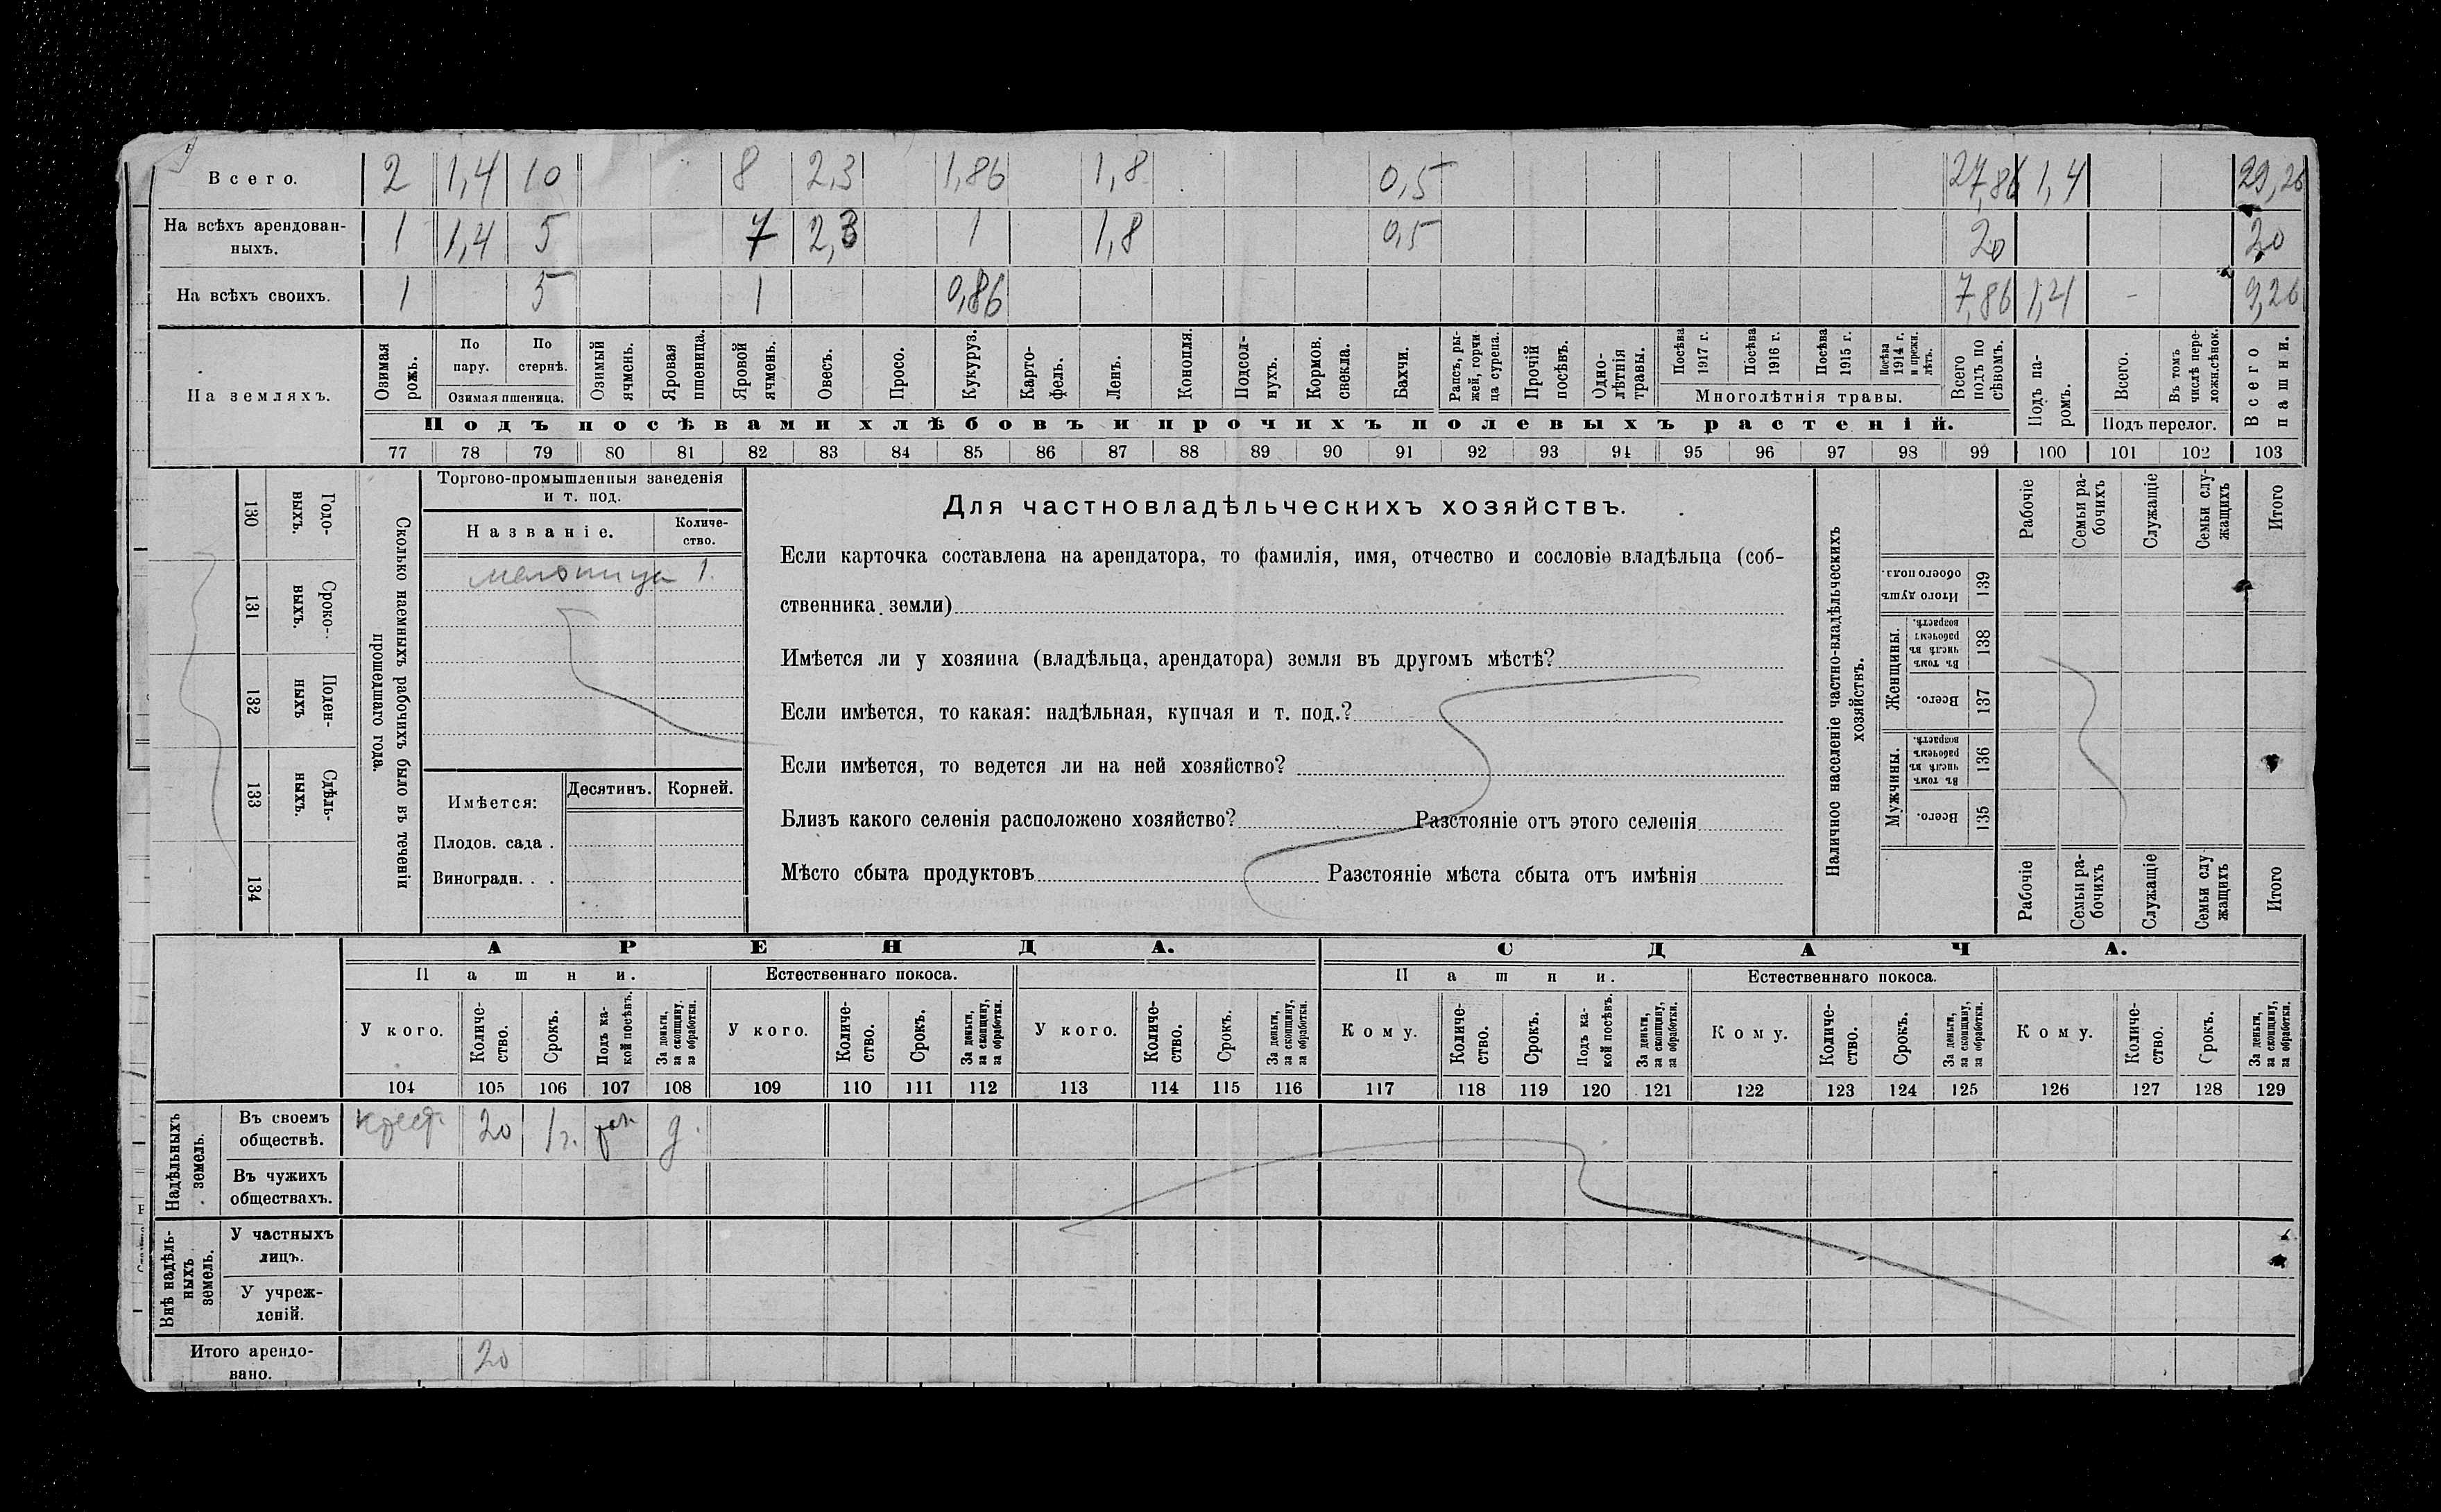 Всего. 2 1,4 10 8 2,3 1,86 1,8 0,5 27,86 1,4 29,26
На всѣхъ арендован-
ныхъ. 1 1,4 5 7 2,3 1 1,8 0,5 20 20
На всѣхъ своихъ. 1 5 1 0,86 7,86 1,4 - 9,26
На земляхъ.
Озимая рожь.
По пару.
По стернѣ.
Озимая пшеница.
Озимый ячмень.
Яровая пшеница.
Яровой ячмень.
Овесъ.
Просо.
Кукуруз.
Карто-
фель.
Ленъ.
Конопля.
Подсол-
нухъ.
Кормов. свекла.
Бахчи.
Рапсъ, ры-
жей, горчи
ца сурепа.
Прочій посѣвъ.
Одно-
лѣтнія
травы.
Посѣва 1917 г.
Посѣва 1916 г.
Посѣва 1915 г.
Посѣва 1914 г. и прежн. лѣтъ.
Многолѣтнія травы.
Всего подъ по сѣвомъ.
Подъ посѣвами хлѣбовъ и прочихъ полевыхъ растеній.
Подъ па-
ромъ.
Всего.
Въ томъ числѣ пере-
ложн.сѣнок.
Подъ перелог.
Всего пашни.
77 78 79 80 81 82 83 84 85 86 87 88 89 90 91 92 93 94 95 96 97 98 99 100 101 102 103
130 Годо-
выхъ.
131 Сроко-
выхъ.
132 Поден-
ныхъ
133 Сдѣль-
ныхъ.
134
Сколько наемныхъ рабочихъ было въ теченіи
прошедшаго года.
Торгово-промышленныя заведенія
и т. под.
Названіе.
Количе-
ство.
мельница 1.
Имѣется:
Десятинъ. Корней.
Плодов. сада .
Виноградн. . .
Для частновладѣльческихъ хозяйствъ.
Если карточка составлена на арендатора, то фамилія, имя, отчество и сословіе владѣльца (соб-
ственника земли)
Имѣется ли у хозяина (владѣльца, арендатора) земля въ другомъ мѣстѣ?
Если имѣется, то какая: надѣльная, купчая и т. под.?
Если имѣется, то ведется ли на ней хозяйство?
Близъ какого селенія расположено хозяйство? Разстояніе отъ этого селенія
Мѣсто сбыта продуктовъ Разстояніе мѣста сбыта отъ имѣнія
Наличное населеніе частно-владѣльческихъ
хозяйствъ.
Рабочіе
Семьи ра-
бочихъ
Служащіе
Семьи слу-
жащихъ
Итого
Итого душъ
обоего пола.
139
Женщины.
Въ томъ числѣ въ рабочемъ возрастѣ.
138
Всего.
137
Мужчины.
Въ томъ числѣ въ рабочемъ возрастѣ.
136
Всего.
135
Рабочіе
Семьи ра-
бочихъ
Служащіе
Семьи слу
жащихъ
Итого
АРЕНДА. СДАЧА.
Пашни. Естественнаго покоса. Пашни. Естественнаго покоса.
У кого.
Количе-
ство.
Срокъ.
Подъ ка-
кой посѣвъ.
За деньги,
за скопщину,
за обработки.
У кого.
Количе-
ство.
Срокъ.
За деньги,
за скопщину,
за обработки.
У кого.
Количе-
ство.
Срокъ.
За деньги,
за скопщину,
за обработки.
Кому.
Количе-
ство.
Срокъ.
Подъ ка-
кой посѣвъ.
За деньги,
за скопщину,
за обработки.
Кому.
Количе-
ство.
Срокъ.
За деньги,
за скопщину,
за обработки.
Кому.
Количе-
ство.
Срокъ.
За деньги,
за скопщину,
за обработки.
104 105 106 107 108 109 110 111 112 113 114 115 116 117 118 119 120 121 122 123 124 125 126 127 128 129
Надѣльныхъ
земель.
Въ своемъ
обществѣ. Крест. 20 1 г. д.
Въ чужихъ
обществахъ.
Внѣ надѣль-
ныхъ
земель.
У частныхъ
лицъ.
У учреж-
деній.
Итого арендо-
вано. 20